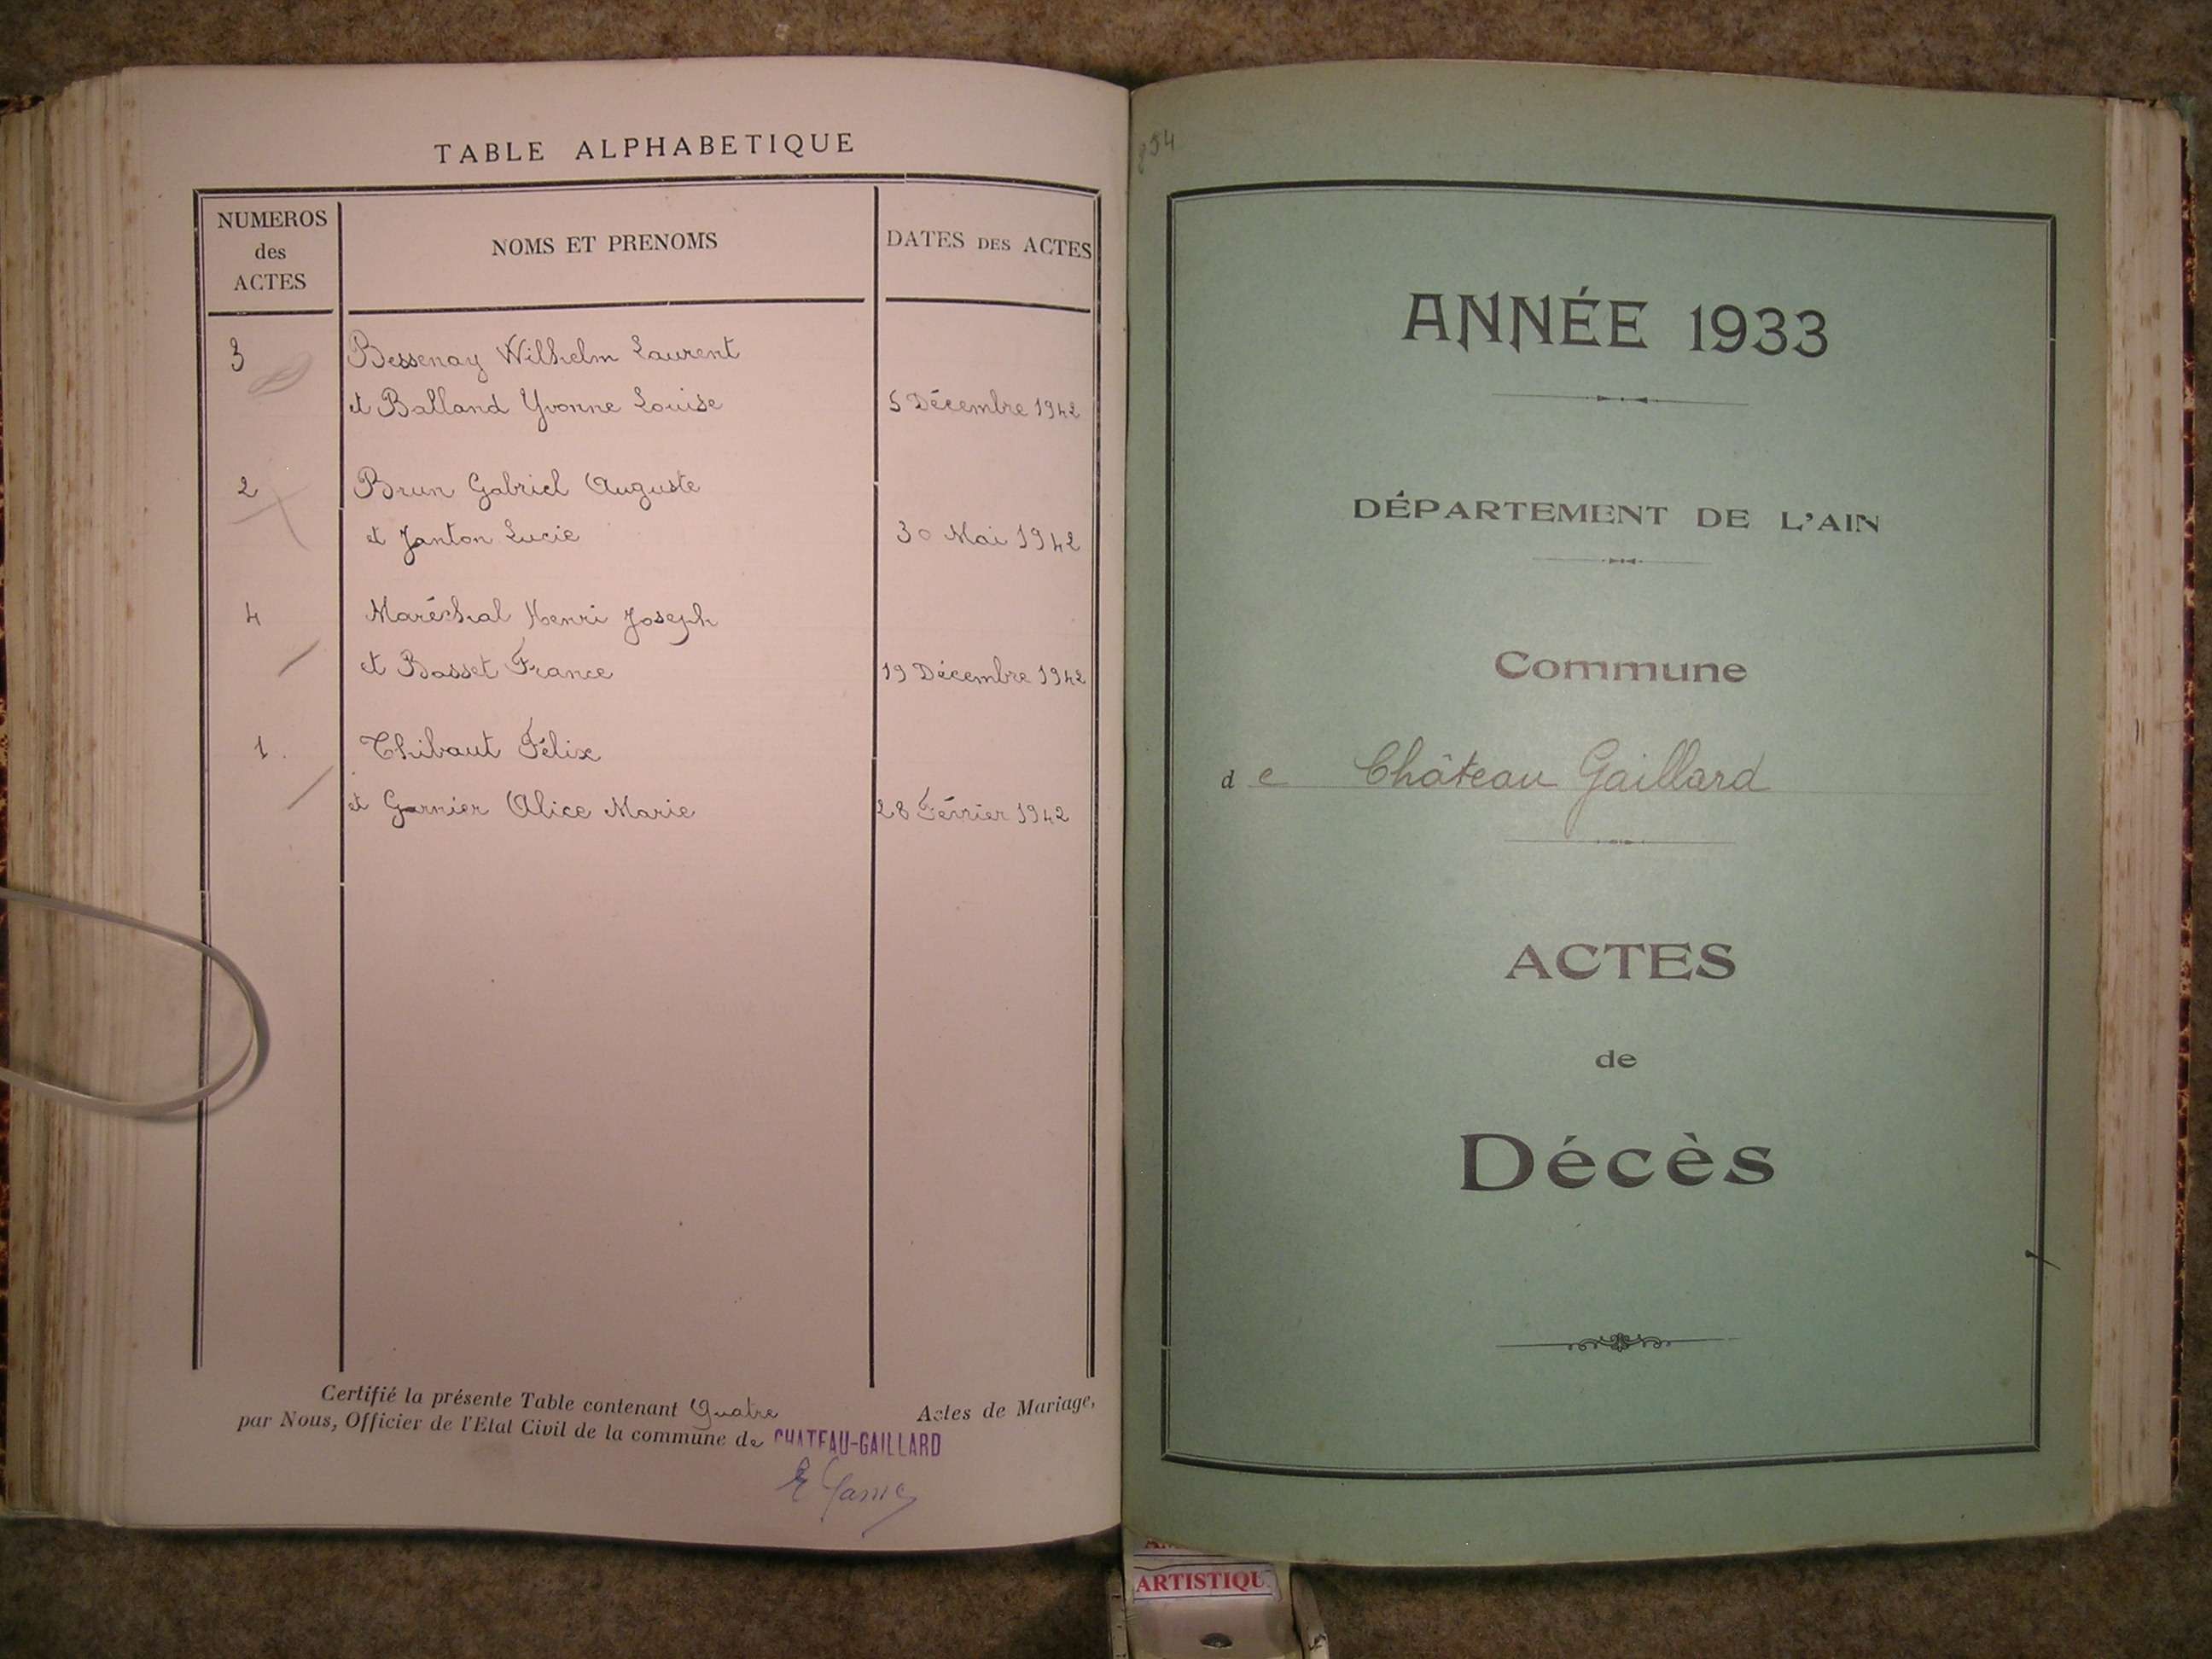 TABLE ALPHABETIQUE
NUMEROS
des
ACTES
NOMS ET PRENOMS
DATES DES ACTES
3 Bessenay Wilhelm Laurent
et Balland Yvonne Louise 5 Décembre 1942
2 Brun Gabriel Auguste
et Janton Lucie 30 Mai 1942
4 Maréchal Henri Joseph
et Basset France 19 Décembre 1942
1. Thibaut Félix
et Garnier Alice Marie 28 Février 1942
Certifié la présente Table contenant Quatre Actes de Mariage,
par Nous, Officier de l'Etat Civil de la commune de CHATEAU-GAILLARD
854
ANNÉE 1933
DÉPARTEMENT DE L'AIN
Commune
de Château Gaillard
ACTES
de
Décès
ARTISTIQU